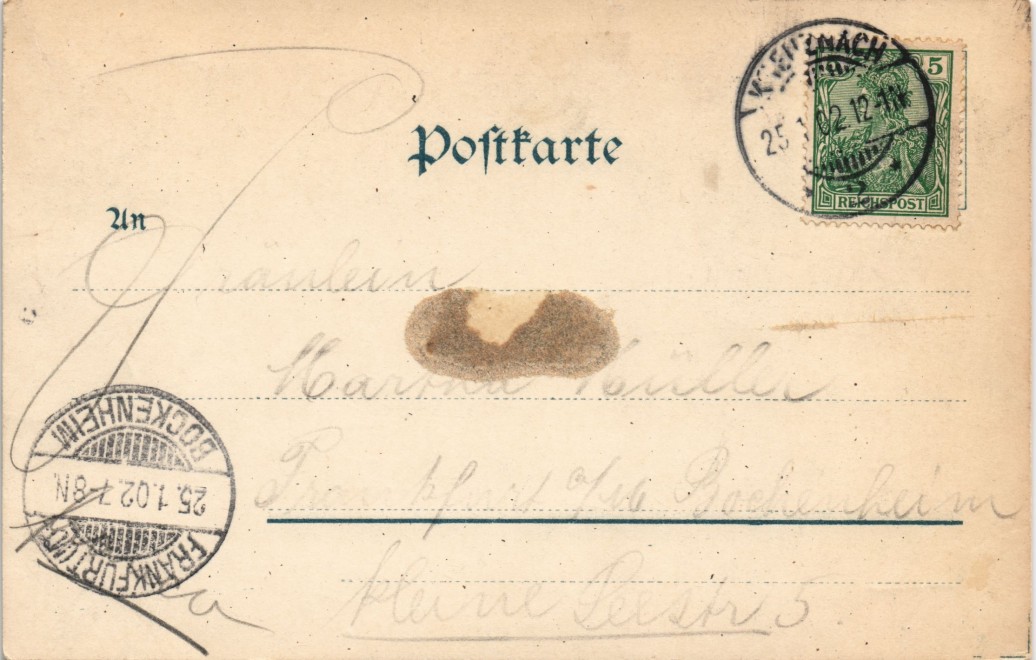 Postkarte
KREUZNACH
25.1.02 12-1N.
5
REICHSPOST
An
Fräulein
Martha Müller
Frankfurt a/M Bockenheim
kleine Seestr 5.
BOCKENHEIM
25.1.02.7-8N.
FRANKFURT (MAIN)